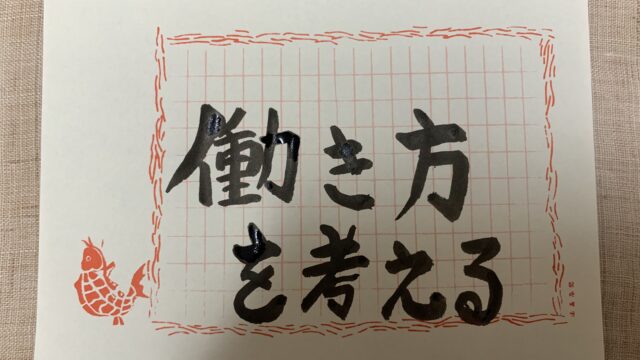 働き方
を考える